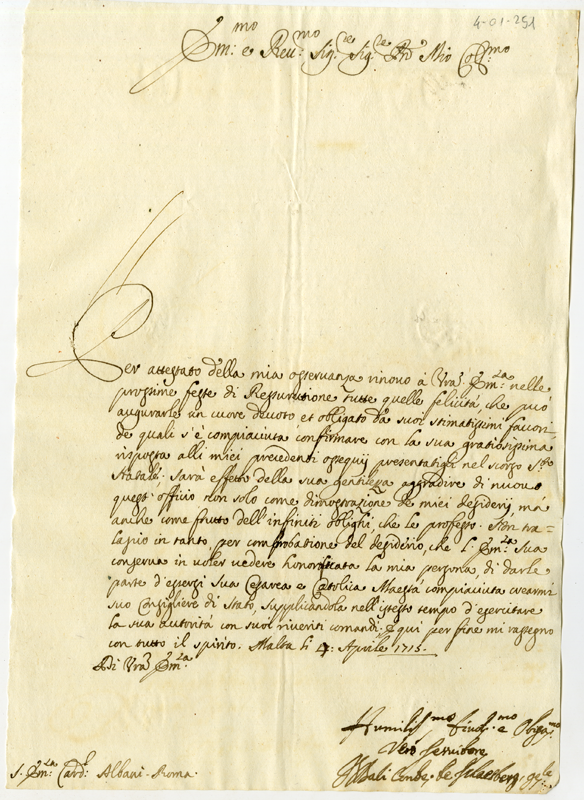 4-01-251
Em:mo e Reu:mo Sig:re Sig:re Prõ Mio Col:mo
Per attestato della mia osseruanza rinouo à Vrã Em:za nelle
prossime feste di Ressurettione tutte quelle felicità, che può
augurarle un cuore deuoto et obligato dà suoi stimatissimi fauori
de quali s'è compiaciuta confirmare con la sua gratiosissima
risposta alli miei precedenti ossequij presentatigli nel scorso S:to
Natale: sarà effetto della sua gentilezza aggradire di nuouo
quest'officio non solo come dimostrazione de miei desiderij, mà
anche come frutto dell'infiniti oblighi, che le professo. Non tra=
lascio in tanto per comprobatione del desiderio, che l'Em:za Sua
conserua in uoler uedere honorificata la mia persona, di darle
parte d'essersi Sua Cesarea e Catolica Maestà compiaciuta crearmi
suo Consigliere di Stato, supplicandola nell'istesso tempo d'esercitare
la sua autorità con suoi riueriti comandi: e qui per fine mi rassegno
con tutto il spirito. Malta li 4: Aprile 1715.
Di Vrã Em:za
Humiliss:mo Diuot:mo e Oblig:mo
Vero Seruitore
S. Em:za Card:l Albani - Roma.